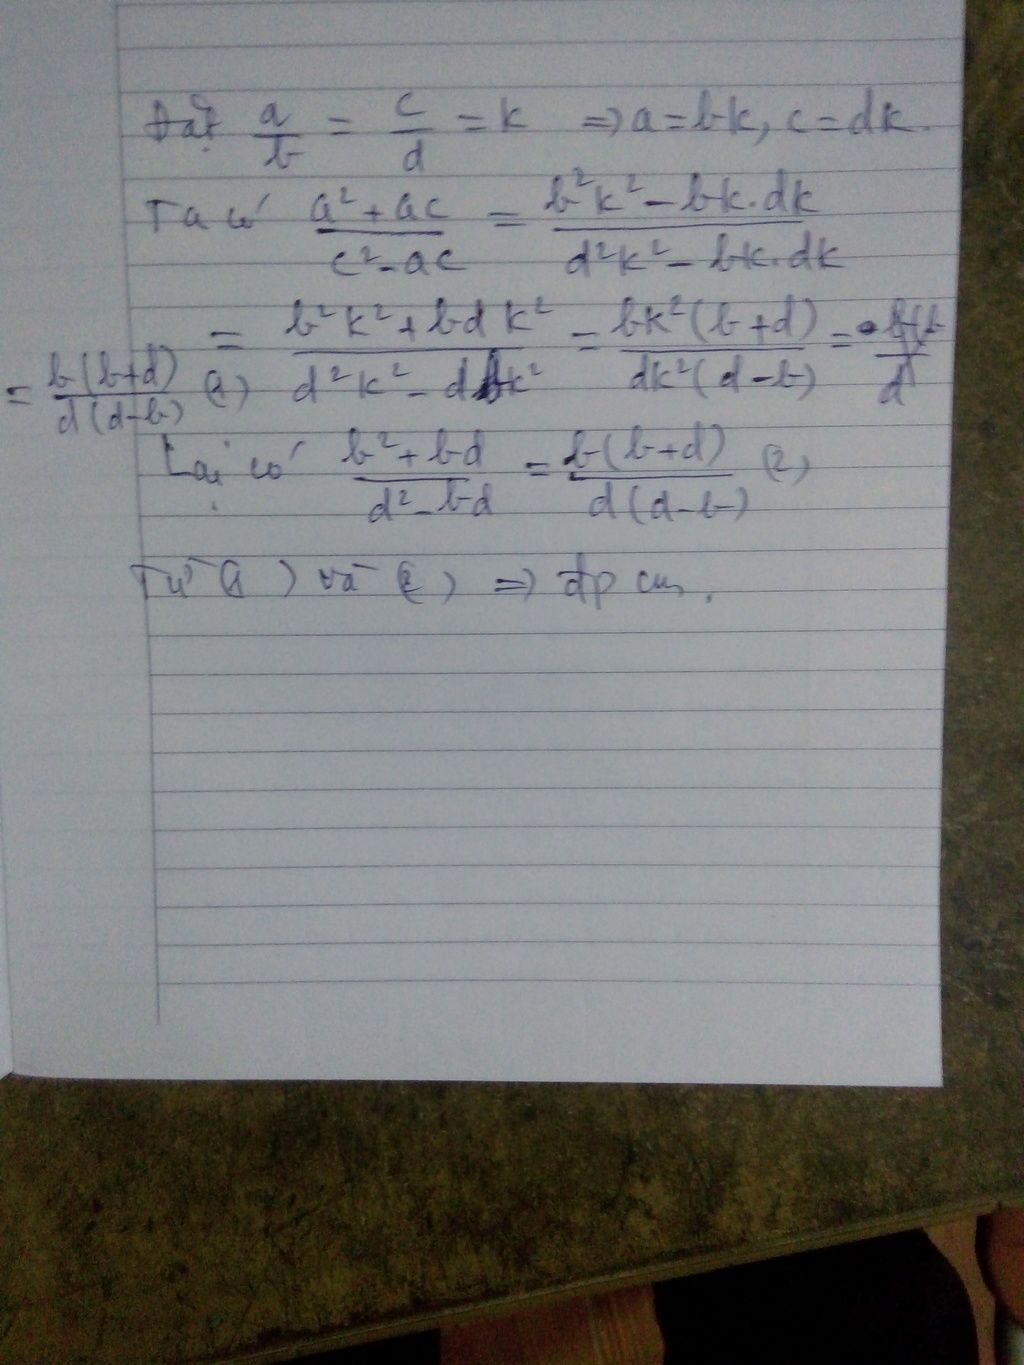 Đặt a/b = c/d = k => a = bk, c = dk.
Ta có (a² + ac)/(c² - ac) = (b²k² - bk.dk)/(d²k² - bk.dk)
= (b²k² + bdk²)/(d²k² - dbk²) = (bk²(b+d))/(dk²(d-b)) =
= (b(b+d))/(d(d-b)) (1)
Lại có (b² + bd)/(d² - bd) = (b(b+d))/(d(d-b)) (2)
Từ (1) và (2) => đpcm.